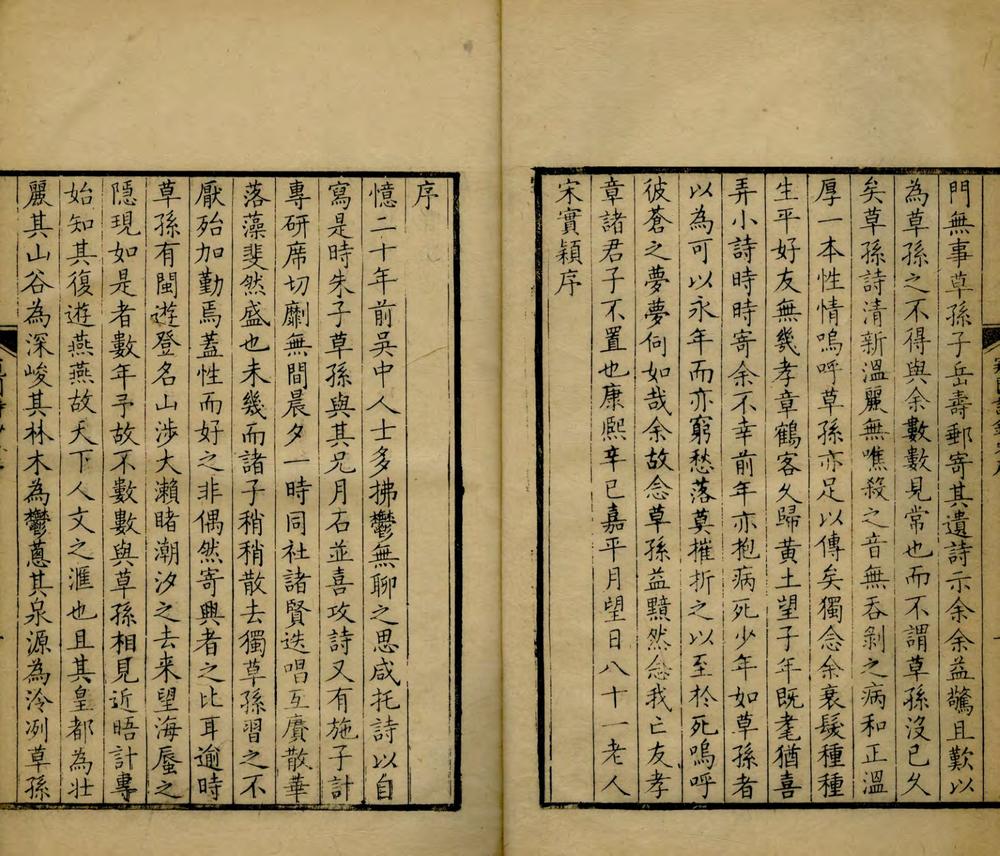 門無事草孫子岳壽郵寄其遺詩示余余益驚且歎以
為草孫之不得與余數數見常也而不謂草孫沒已久
矣草孫詩清新溫麗無噍殺之音無吞剝之病和正溫
厚一本性情嗚呼草孫亦足以傳矣獨念余衰髮種種
生平好友無幾孝章鶴客久歸黃土望子年既耄猶喜
弄小詩時時寄余不幸前年亦抱病死少年如草孫者
以為可以永年而亦窮愁落莫摧折之以至於死嗚呼
彼蒼之夢夢何如哉余故念草孫益黯然念我亡友孝
章諸君子不置也康熙辛巳嘉平月望日八十一老人
宋實穎序
序
憶二十年前吳中人士多拂鬱無聊之思咸托詩以自
寫是時朱子草孫與其兄月石並喜攻詩又有施子計
專研席切劘無間晨夕一時同社諸賢迭唱互賡散華
落藻斐然盛也未幾而諸子稍稍散去獨草孫習之不
厭殆加勤焉蓋性而好之非偶然寄興者之比耳逾時
草孫有閩遊登名山涉大瀨睹潮汐之去來望海蜃之
隱現如是者數年予故不數數與草孫相見近晤計專
始知其復遊燕燕故天下人文之滙也且其皇都為壯
麗其山谷為深峻其林木為鬱蔥其泉源為泠冽草孫